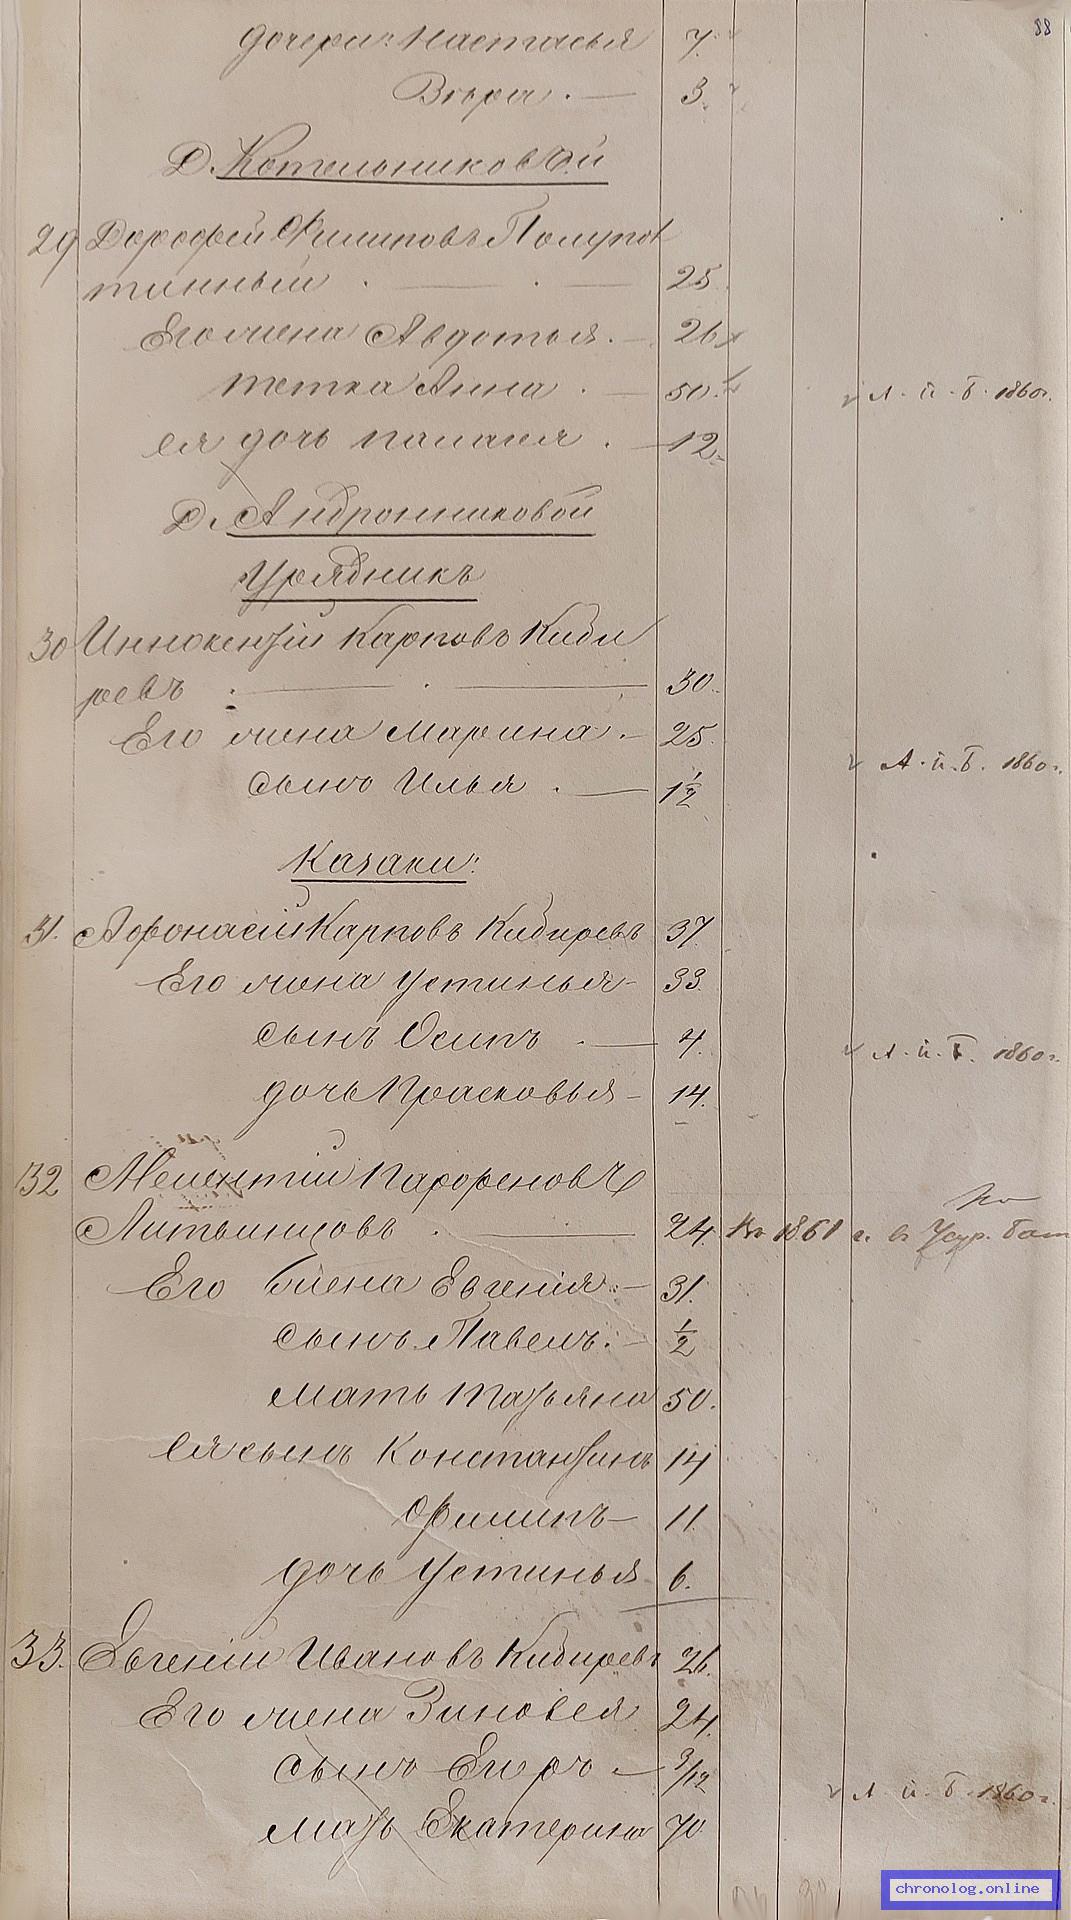 88
дочери: Настасья 7.
Вѣра . — 3.
Д. Котельниковой
29 Дорофей Филиповъ Полупол
тинный . — . — 25
Его жена Авдотья . — 26
тетка Анна . — 50. А. й. Б. 1860 г.
ея дочь Палагея . — 12.
Д. Андронниковой
Урядникъ
30 Иннокентій Карповъ Киби
ревъ . — . — 30.
Его жена Марина . — 25.
А. й. Б. 1860 г.
сынъ Илья . — 1½
Казаки:
31. Афонасій Карповъ Кибиревъ 37
Его жена Устинья - 33.
сынъ Осипъ . — 4. А. й. Б. 1860 г.
дочь Прасковья - 14.
32 Мелентій Парфеновъ
Литвинцовъ . — 24. Въ 1861 г. в Усур. бат
Его жена Евгенія . — 31.
сынъ Павелъ . — ½
мать Татьяна 50.
ея сынъ Константинъ 14
Филипъ — 11.
дочь Устинья 6.
33. Евгеній Ивановъ Кибиревъ 26.
Его жена Зиновея 24.
сынъ Егоръ — 9/12
А. й. Б. 1860 г.
мать Екатерина 70
chronolog.online